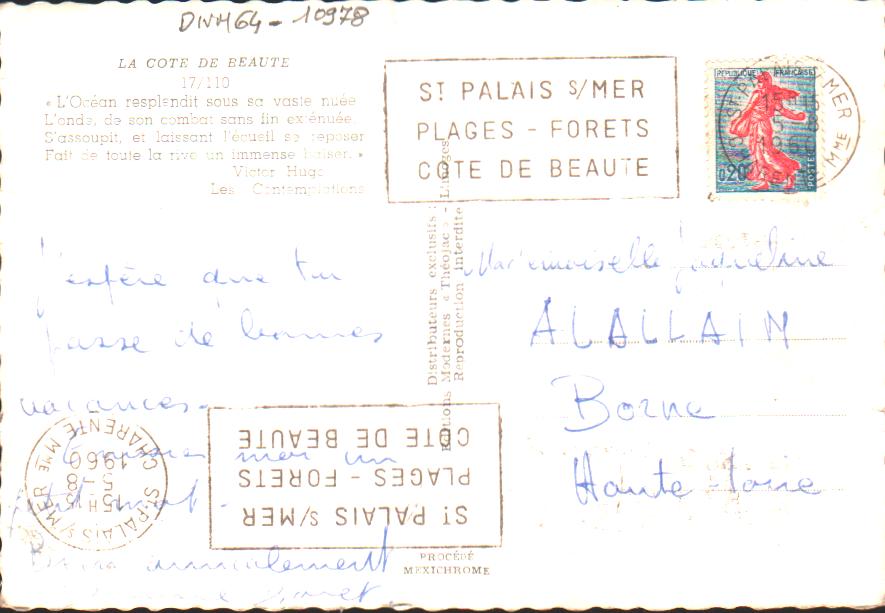 DWM64-10978
LA COTE DE BEAUTE
17/110
« L'Océan resplendit sous sa vaste nuée
L'onde, de son combat sans fin exténuée,
S'assoupit, et laissant l'écueil se reposer
Fait de toute la rive un immense baiser. »
Victor Hugo
Les Contemplations
ST PALAIS S/MER
PLAGES - FORETS
COTE DE BEAUTE
REPUBLIQUE FRANÇAISE
0,20
POSTES
J'espère que tu
passe de bonnes
vacances.
un
petit mot.
amicalement
Distributeurs exclusifs :
Editions Modernes « Théojac » - Limoges
Reproduction interdite
Mademoiselle Jaqueline
ALALLAIN
Borne
Haute-Loire
ST PALAIS S/MER
PLAGES - FORETS
COTE DE BEAUTE
ST PALAIS S/MER
15H15
5-8
1960
CHARENTE MME
PROCÉDÉ
MEXICHROME